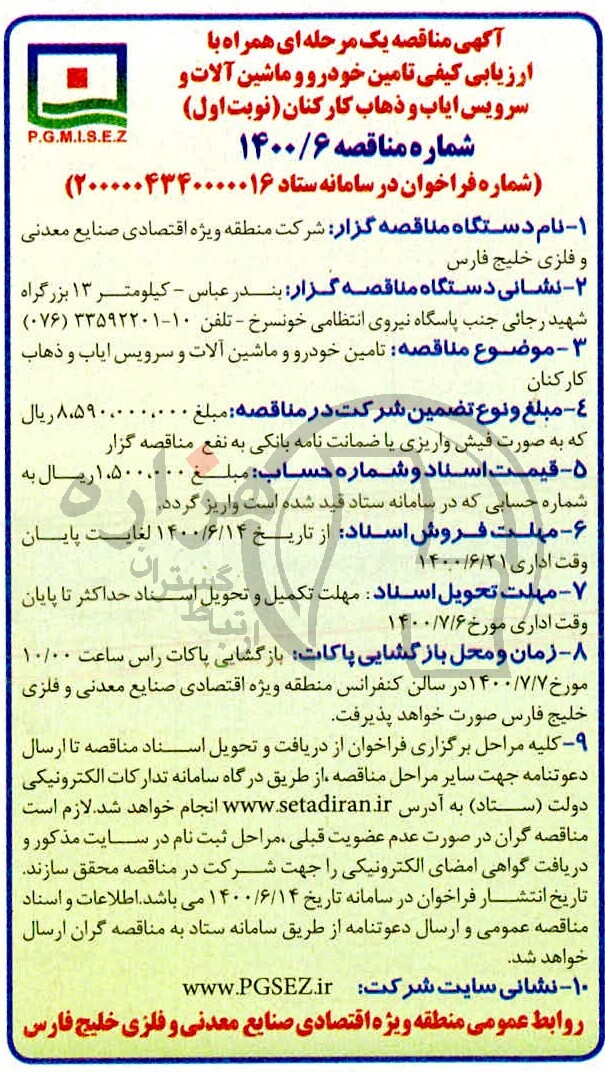 آگهی مناقصه یک مرحله ای همراه با
ارزیابی کیفی تامین خودرو و ماشین آلات و
سرویس ایاب و ذهاب کارکنان (نوبت اول)
شماره مناقصه ۱۴۰۰/۶
(شماره فراخوان در سامانه ستاد ۲۰۰۰۰۰۴۳۴۰۰۰۰۰۱۶)
P.G.M.I.S.E.Z
۱-نام دستگاه مناقصه گزار: شرکت منطقه ویژه اقتصادی صنایع معدنی
و فلزی خلیج فارس
۲-نشانی دستگاه مناقصه گزار: بندر عباس - کیلومتر ۱۳ بزرگراه
شهید رجائی جنب پاسگاه نیروی انتظامی خونسرخ - تلفن ۱۰-۳۳۵۹۲۲۰۱ (۰۷۶)
۳-موضوع مناقصه: تامین خودرو و ماشین آلات و سرویس ایاب و ذهاب
کارکنان
۴-مبلغ و نوع تضمین شرکت در مناقصه: مبلغ ۸،۵۹۰،۰۰۰،۰۰۰ ریال
که به صورت فیش واریزی یا ضمانت نامه بانکی به نفع مناقصه گزار
۵-قیمت اسناد و شماره حساب: مبلغ ۱،۵۰۰،۰۰۰ ریال به
شماره حسابی که در سامانه ستاد قید شده است واریز گردد.
۶-مهلت فروش اسناد: از تاریخ ۱۴۰۰/۶/۱۴ لغایت پایان
وقت اداری ۱۴۰۰/۶/۲۱
۷-مهلت تحویل اسناد: مهلت تکمیل و تحویل اسناد حداکثر تا پایان
وقت اداری مورخ ۱۴۰۰/۷/۶
۸-زمان و محل بازگشایی پاکات: بازگشایی پاکات راس ساعت ۱۰/۰۰
مورخ ۱۴۰۰/۷/۷ در سالن کنفرانس منطقه ویژه اقتصادی صنایع معدنی و فلزی
خلیج فارس صورت خواهد پذیرفت.
۹-کلیه مراحل برگزاری فراخوان از دریافت و تحویل اسناد مناقصه تا ارسال
دعوتنامه جهت سایر مراحل مناقصه ،از طریق درگاه سامانه تدارکات الکترونیکی
دولت (ستاد) به آدرس www.setadiran.ir انجام خواهد شد.لازم است
مناقصه گران در صورت عدم عضویت قبلی ،مراحل ثبت نام در سایت مذکور و
دریافت گواهی امضای الکترونیکی را جهت شرکت در مناقصه محقق سازند.
تاریخ انتشار فراخوان در سامانه تاریخ ۱۴۰۰/۶/۱۴ می باشد.اطلاعات و اسناد
مناقصه عمومی و ارسال دعوتنامه از طریق سامانه ستاد به مناقصه گران ارسال
خواهد شد.
۱۰-نشانی سایت شرکت: www.PGSEZ.ir
روابط عمومی منطقه ویژه اقتصادی صنایع معدنی و فلزی خلیج فارس
هزاره
گستران
ارتباط